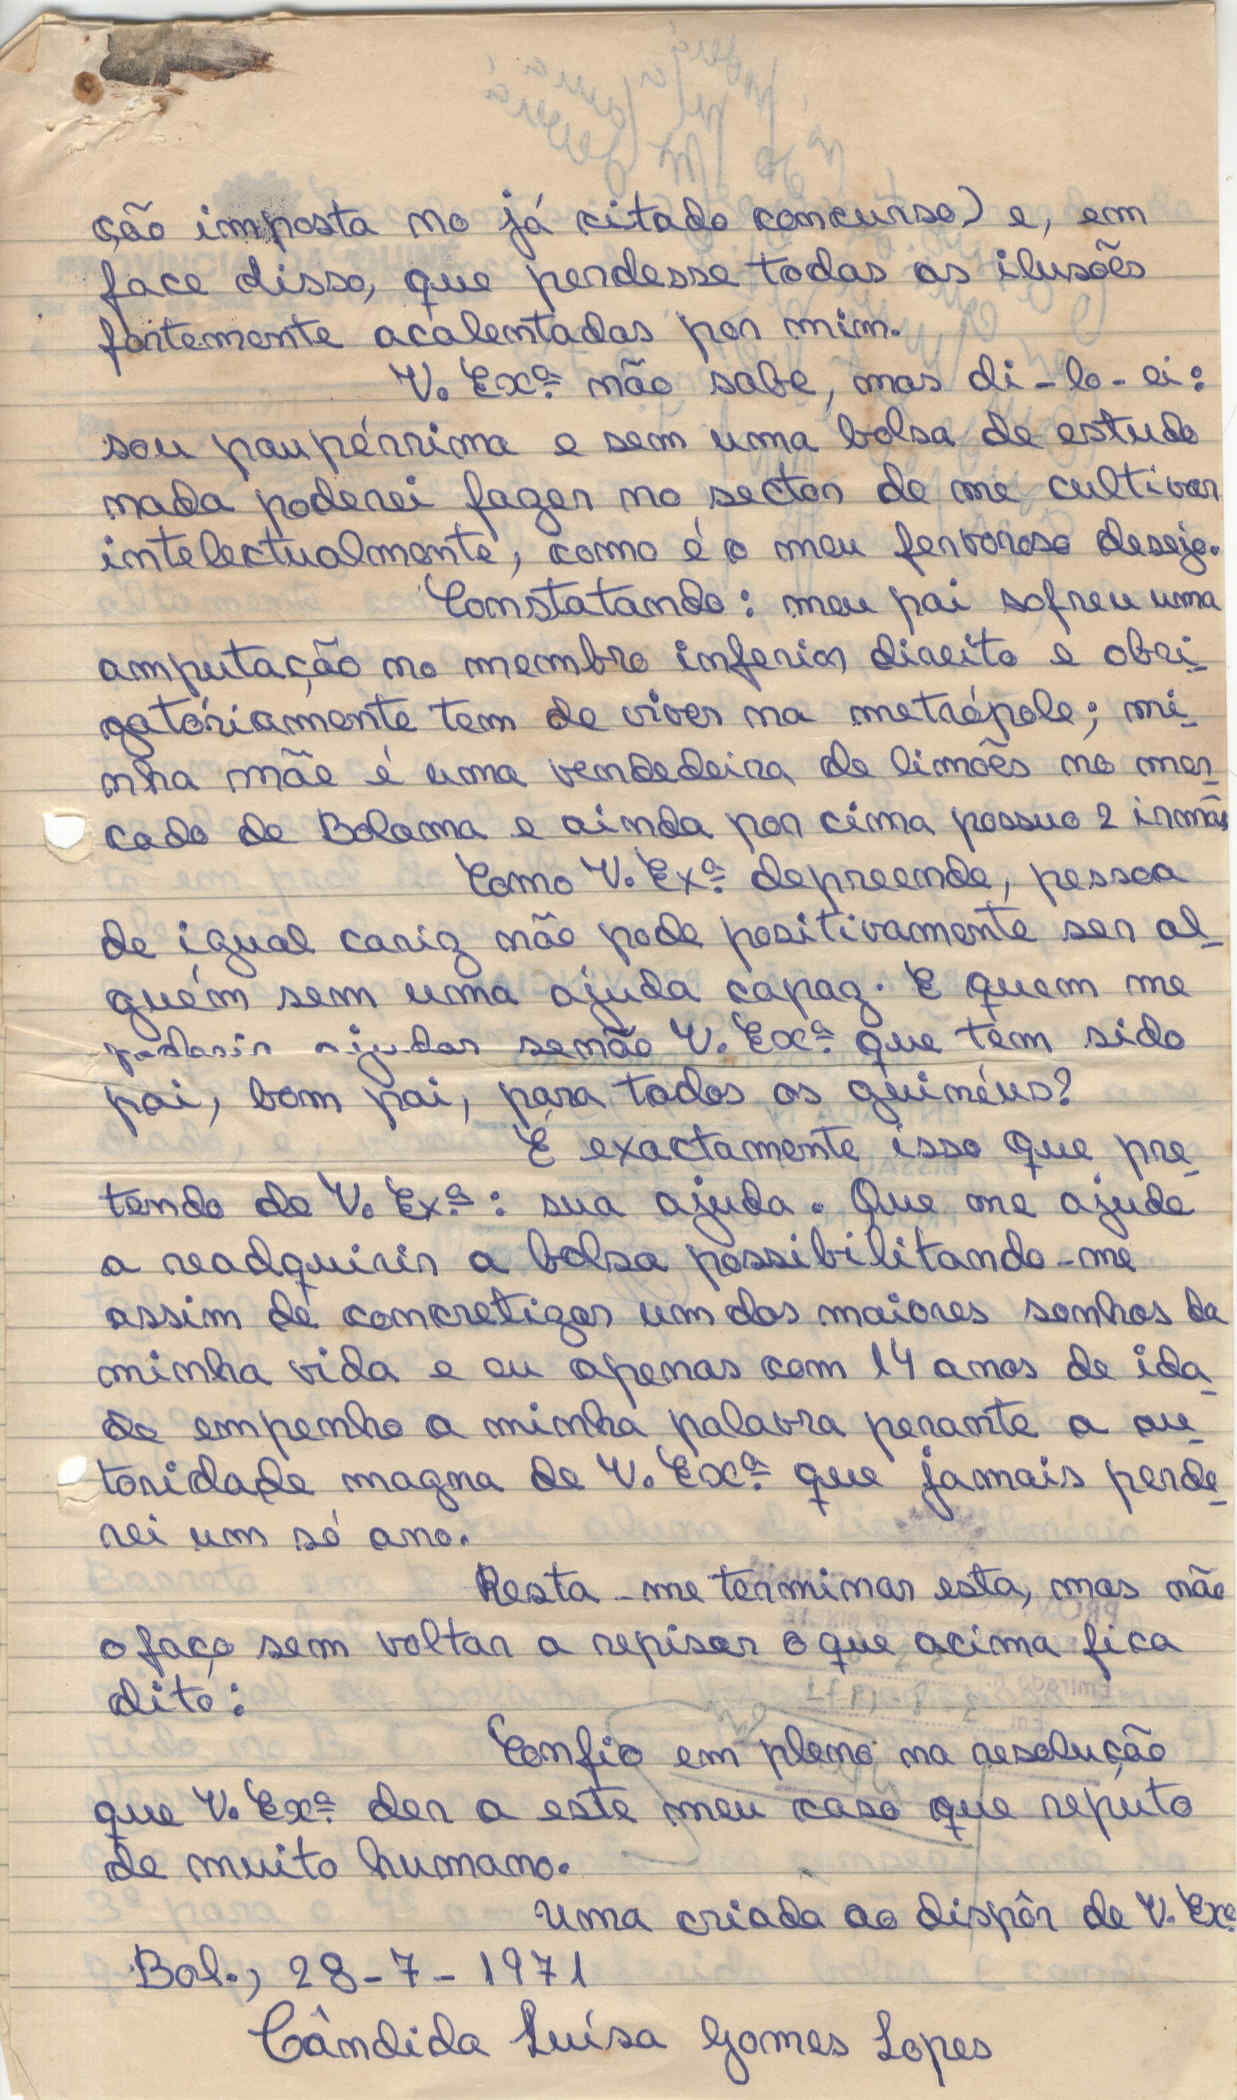 ção imposta no já citado concurso) e, em
face disso, que perdesse todas as ilusões
fortemente acalentadas por mim.
V. Exª não sabe, mas di-lo-ei:
sou paupérrima e sem uma bolsa de estudo
nada poderei fazer no sector de me cultivar
intelectualmente, como é o meu fervoroso desejo.
Constatando: meu pai sofreu uma
amputação no membro inferior direito e obri-
gatóriamente tem de viver na metrópole; mi-
nha mãe é uma vendedeira de limões no mer-
cado de Bolama e ainda por cima possuo 2 irmãs
Como V. Exª depreende, pessoa
de igual cariz não pode positivamente ser al-
guém sem uma ajuda capaz. E quem me
poderia ajudar senão V. Exª que tem sido
pai, bom pai, para todos os guinéus?
É exactamente isso que pre-
tendo de V. Exª: sua ajuda. Que me ajude
a readquirir a bolsa possibilitando-me
assim de concretizar um dos maiores sonhos da
minha vida e eu apenas com 14 anos de ida-
de empenho a minha palavra perante a au-
toridade magna de V. Exª que jamais perde-
rei um só ano.
Resta-me terminar esta, mas não
o faço sem voltar a repisar o que acima fica
dito:
Confio em pleno na resolução
que V. Exª der a este meu caso que reputo
de muito humano.
Uma criada ao dispôr de V. Exª
Bol., 28-7-1971
Cândida Luísa Gomes Lopes